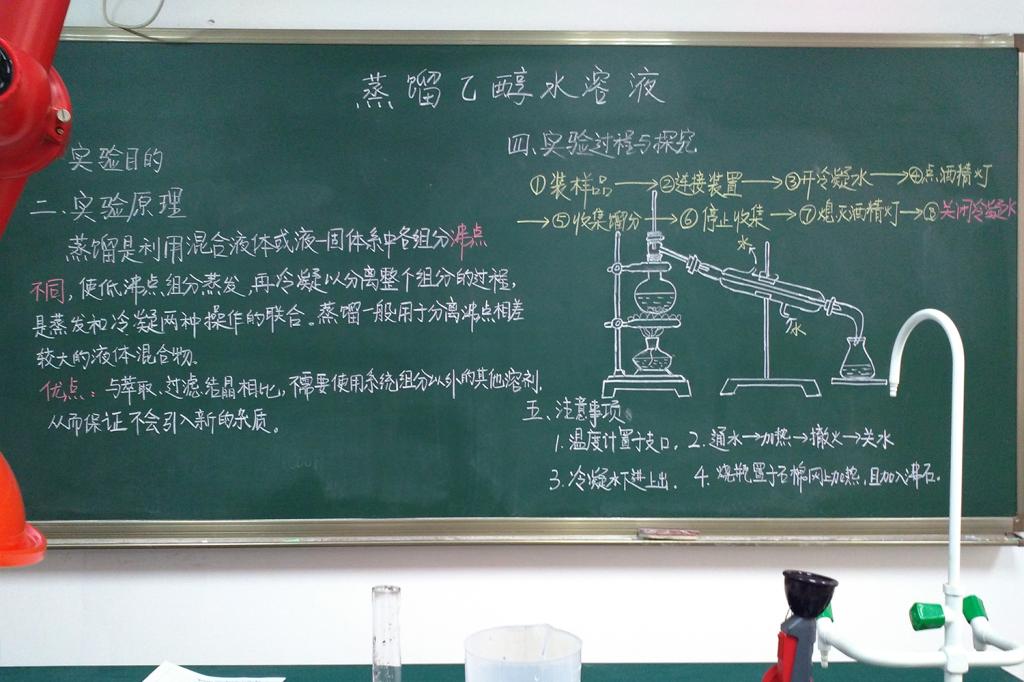 蒸馏乙醇水溶液
实验目的
二、实验原理
蒸馏是利用混合液体或液-固体系中各组分沸点
不同，使低沸点组分蒸发，再冷凝以分离整个组分的过程，
是蒸发和冷凝两种操作的联合。蒸馏一般用于分离沸点相差
较大的液体混合物。
优点：与萃取、过滤、结晶相比，不需要使用系统组分以外的其他溶剂，
从而保证不会引入新的杂质。
四、实验过程与探究
①装样品→②连接装置→③开冷凝水→④点酒精灯
→⑤收集馏分→⑥停止收集→⑦熄灭酒精灯→⑧关闭冷凝水
水
水
五、注意事项
1.温度计置于支口．2.通水→加热→撤火→关水
3.冷凝水下进上出．4.烧瓶置于石棉网上加热，且加入沸石。